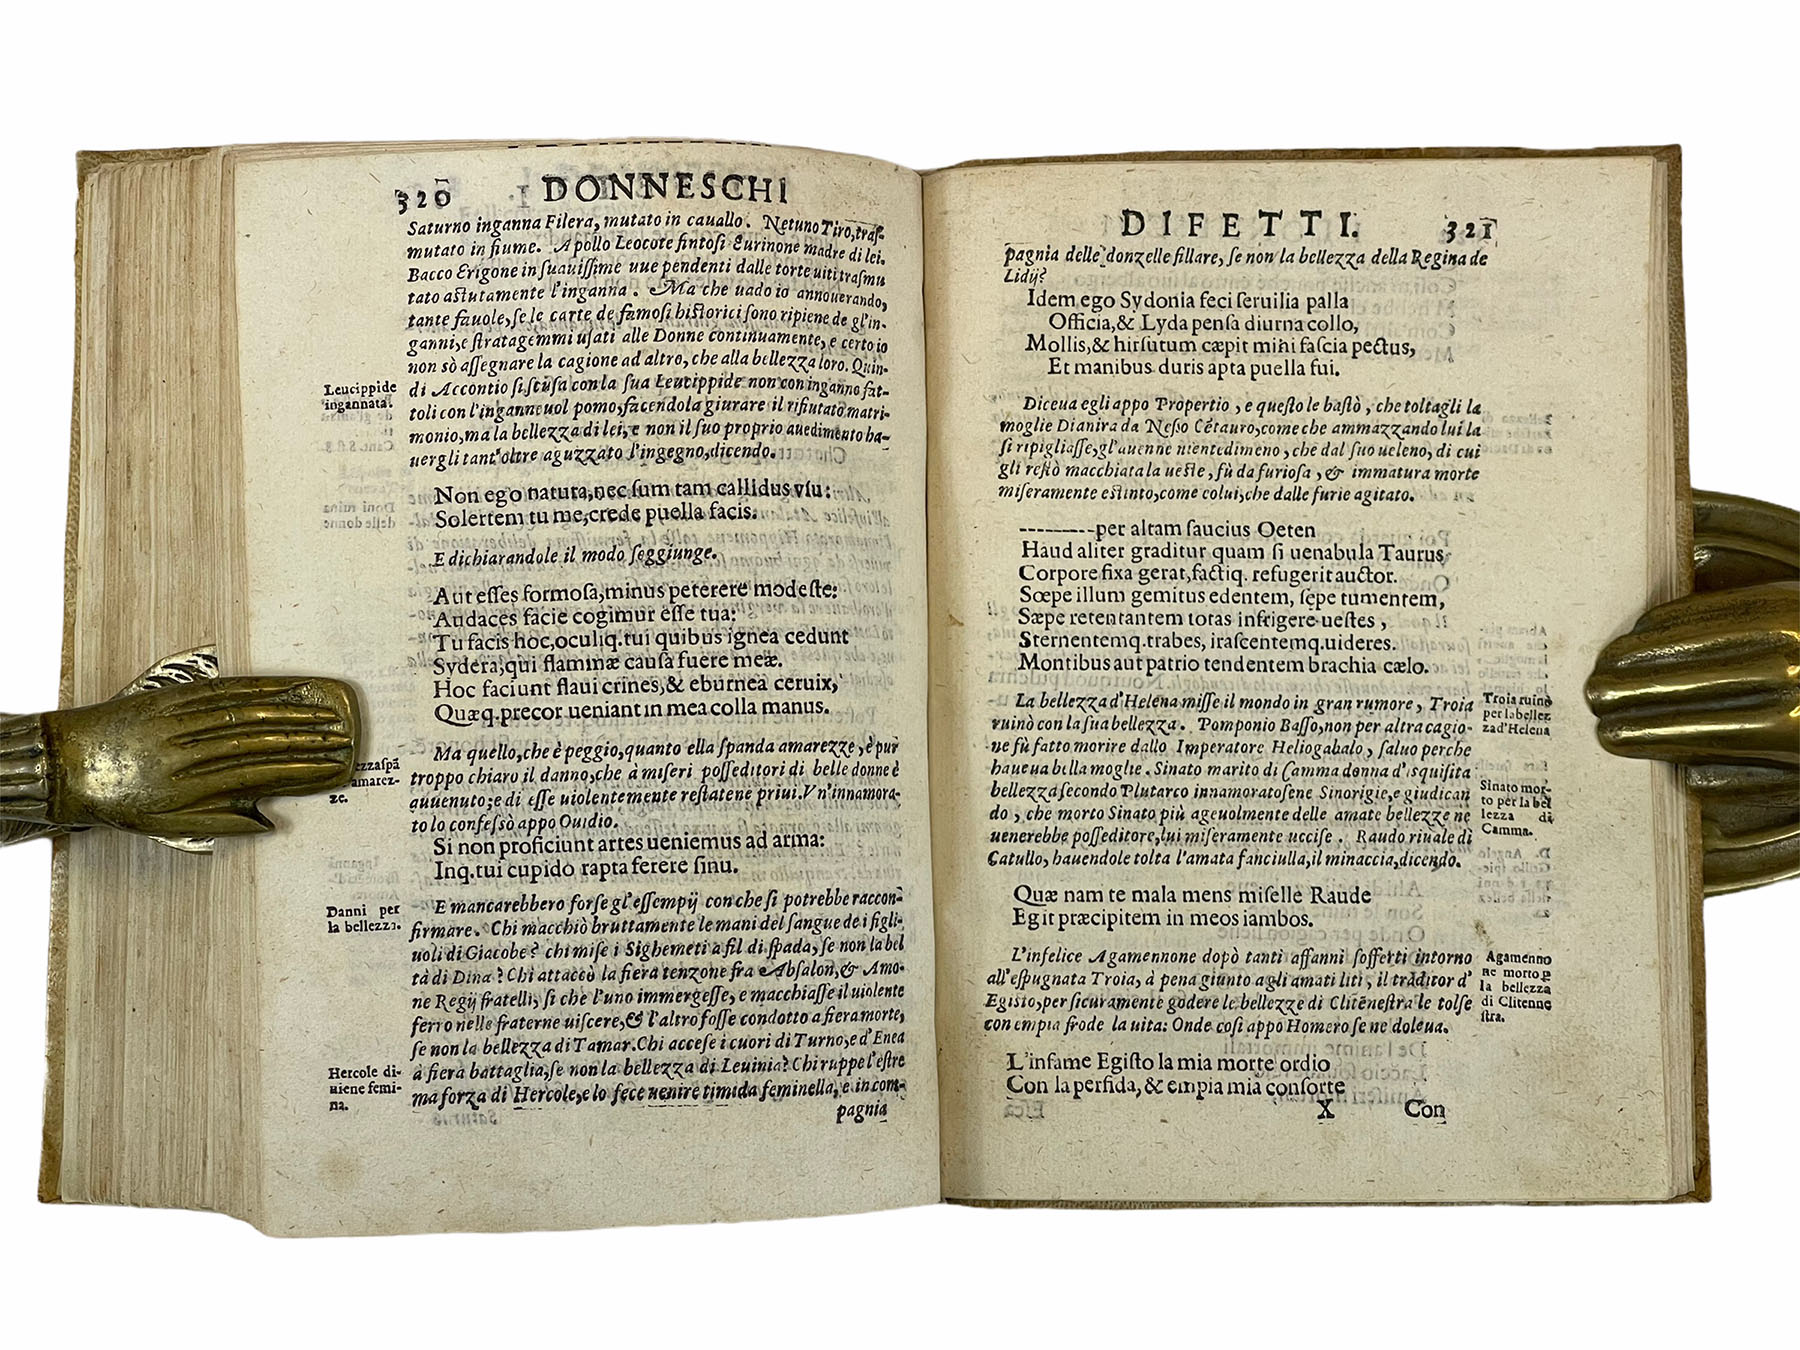 320 I DONNESCHI
Saturno inganna Filera, mutato in cauallo. Netuno Tiro, traſ-
mutato in fiume. Apollo Leocote fintoſi Eurinone madre di lei.
Bacco Erigone in ſuauiſſime uue pendenti dalle torte uiti traſmu
tato aſtutamente l'inganna. Ma che uado io annouerando,
tante fauole, ſe le carte de famoſi hiſtorici ſono ripiene de gl'in-
ganni, e ſtratagemmi uſati alle Donne continuamente, e certo io
non sò aſſegnare la cagione ad altro, che alla bellezza loro. Quin-
di Accontio ſi ſcuſa con la ſua Leucippide non con inganno fat-
Leucippide
ingannata.
toli con l'inganneuol pomo, facendola giurare il rifiutato matri-
monio, ma la bellezza di lei, e non il ſuo proprio auedimento ha-
uergli tant'oltre aguzzato l'ingegno, dicendo.
Non ego natura, nec ſum tam callidus vſu:
Solertem tu me, crede puella facis.
E dichiarandole il modo ſeggiunge.
Aut eſſes formoſa, minus peterere modeſte:
Audaces facie cogimur eſſe tua:
Tu facis hoc, oculiq. tui quibus ignea cedunt
Sydera, qui flaminæ cauſa fuere meæ.
Hoc faciunt flaui crines, & eburnea ceruix,
Quæq. precor ueniant in mea colla manus.
Ma quello, che è peggio, quanto ella ſpanda amarezze, è pur
troppo chiaro il danno, che à miſeri poſſeditori di belle donne è
ezzaſpã
amarez-
ze.
auuenuto; e di eſſe uiolentemente reſtatene priui. Vn'innamora-
to lo confeſsò appo Ouidio.
Si non proficiunt artes ueniemus ad arma:
Inq. tui cupido rapta ferere ſinu.
E mancarebbero forſe gl'eſſempij con che ſi potrebbe raccon-
Danni per
la bellezza.
firmare. Chi macchiò bruttamente le mani del ſangue de i figli-
uoli di Giacobe? chi miſe i Sighemeti a fil di ſpada, ſe non la bel
tà di Dina? Chi attaccò la fiera tenzone fra Abſalon, & Amo-
ne Regij fratelli, ſi che l'uno immergeſſe, e macchiaſſe il uiolente
ferro nelle fraterne uiſcere, & l'altro foſſe condotto a fiera morte,
ſe non la bellezza di Tamar. Chi acceſe i cuori di Turno, e d'Enea
à fiera battaglia, ſe non la bellezza di Leuinia? Chi ruppe l'eſtre
Hercole di-
uiene femi-
na.
ma forza di Hercole, e lo fece uenire timida feminella, e in com-
pagnia
DIFETTI. 321
pagnia delle donzelle fillare, ſe non la bellezza della Regina de
Lidij?
Idem ego Sydonia feci ſeruilia palla
Officia, & Lyda penſa diurna collo,
Mollis, & hirſutum cæpit mihi faſcia pectus,
Et manibus duris apta puella fui.
Diceua egli appo Propertio, e queſto le baſtò, che toltagli la
moglie Dianira da Neſſo Cẽtauro, come che ammazzando lui la
ſi ripigliaſſe, gl'auenne nientedimeno, che dal ſuo ueleno, di cui
gli reſtò macchiata la ueſte, fù da furioſa, & immatura morte
miſeramente eſtinto, come colui, che dalle furie agitato.
---------per altam ſaucius Oeten
Haud aliter graditur quam ſi uenabula Taurus
Corpore fixa gerat, factiq. refugerit auctor.
Sœpe illum gemitus edentem, ſępe tumentem,
Sæpe retentantem totas infrigere ueſtes,
Sternentemq. trabes, iraſcentemq. uideres.
Montibus aut patrio tendentem brachia cælo.
La bellezza d'Helena miſſe il mondo in gran rumore, Troia
Troia ruinò
per la bellez
za d'Helena
ruinò con la ſua bellezza. Pomponio Baſſo, non per altra cagio-
ne fù fatto morire dallo Imperatore Heliogabalo, ſaluo perche
haueua bella moglie. Sinato marito di Camma donna d'iſquiſita
bellezza ſecondo Plutarco innamoratoſene Sinorigie, e giudican
Sinato mor-
to per la bel
lezza di
Camma.
do, che morto Sinato più ageuolmente delle amate bellezze ne
uenerebbe poſſeditore, lui miſeramente ucciſe. Raudo riuale di
Catullo, hauendole tolta l'amata fanciulla, il minaccia, dicendo.
Quæ nam te mala mens miſelle Raude
Egit præcipitem in meos iambos.
L'infelice Agamennone dopò tanti affanni ſofferti intorno
Agamenno
ne morto p
la bellezza
di Clitenne
ſtra.
all'eſpugnata Troia, à pena giunto agli amati liti, il traditor d'
Egiſto, per ſicuramente godere le bellezze di Clitẽneſtra le tolſe
con empia frode la uita: Onde coſi appo Homero ſe ne doleua.
L'infame Egiſto la mia morte ordio
Con la perfida, & empia mia conſorte
X Con